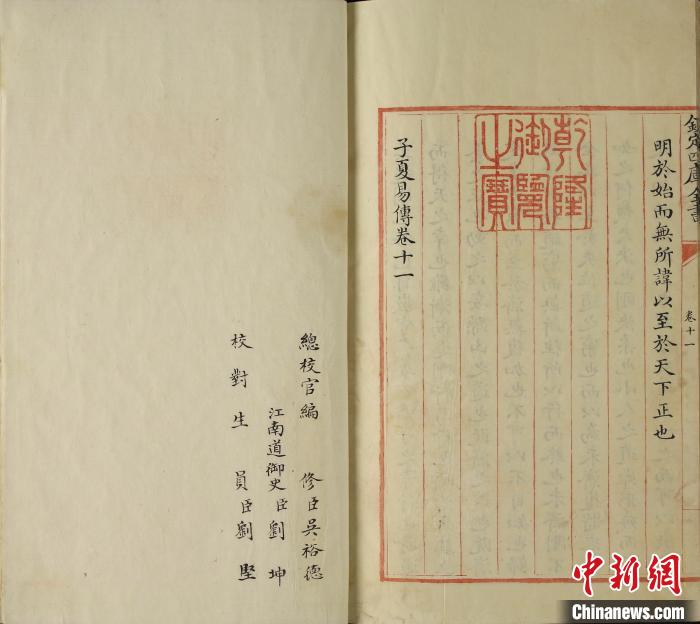 欽定四庫全書
卷十一
明於始而無所諱以至於天下正也
乾隆御覽之寶
子夏易傳卷十一
總校官編 修臣吳裕德
江南道御史臣劉坤
校對生 員臣劉堅
中新網
Chinanews.com